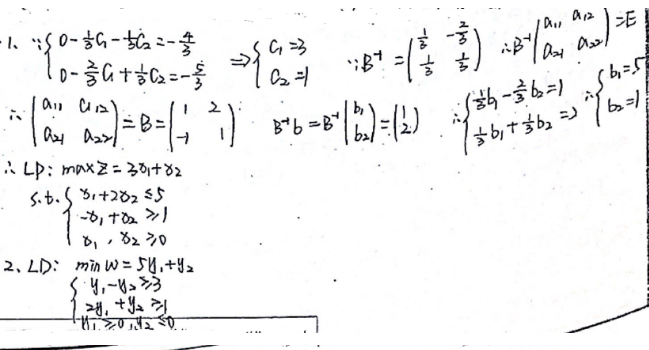 1. ∵ { 0 - 1/3 C₁ - 1/3 C₂ = -4/3
0 - 2/3 C₁ + 1/3 C₂ = -5/3
⇒ { C₁ = 3
C₂ = 1
∵ B⁻¹ = ( 1/3 -2/3
1/3 1/3 )
∴ B⁻¹ ( a₁₁ a₁₂
a₂₁ a₂₂ ) = E
∴ ( a₁₁ a₁₂
a₂₁ a₂₂ ) = B = ( 1 2
-1 1 )
B⁻¹b = B⁻¹ ( b₁
b₂ ) = ( 1
2 )
∴ { 1/3 b₁ - 2/3 b₂ = 1
1/3 b₁ + 1/3 b₂ = 2
∴ { b₁ = 5
b₂ = 1
∴ LP: max Z = 3x₁ + x₂
s.t. { x₁ + 2x₂ ≤ 5
-x₁ + x₂ ≥ 1
x₁, x₂ ≥ 0
2. LD: min W = 5y₁ + y₂
{ y₁ - y₂ ≥ 3
2y₁ + y₂ ≥ 1
y₁ ≥ 0, y₂ ≤ 0